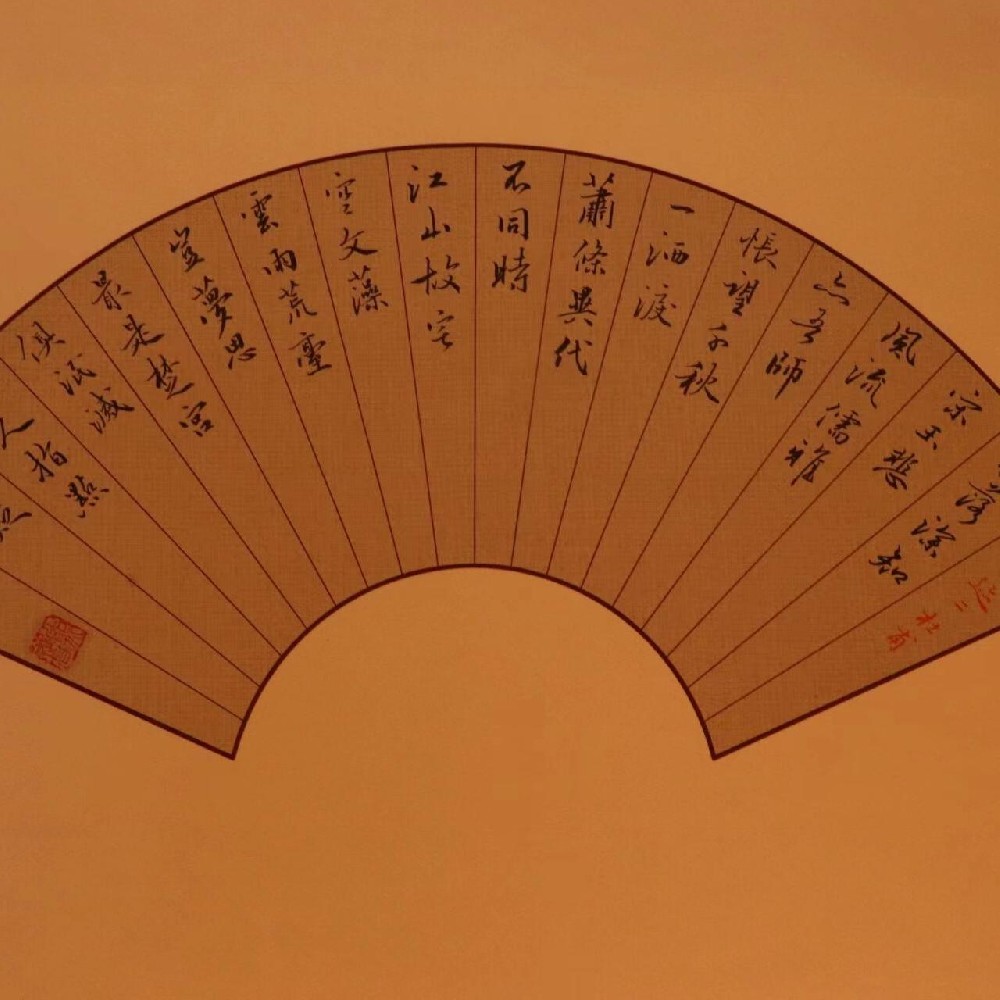 二 杜甫
落深知
宋玉悲
風流儒雅
亦吾師
悵望千秋
一洒淚
蕭條異代
不同時
江山故宅
空文藻
雲雨荒臺
豈夢思
最是楚宮
俱泯滅
人指點
疑